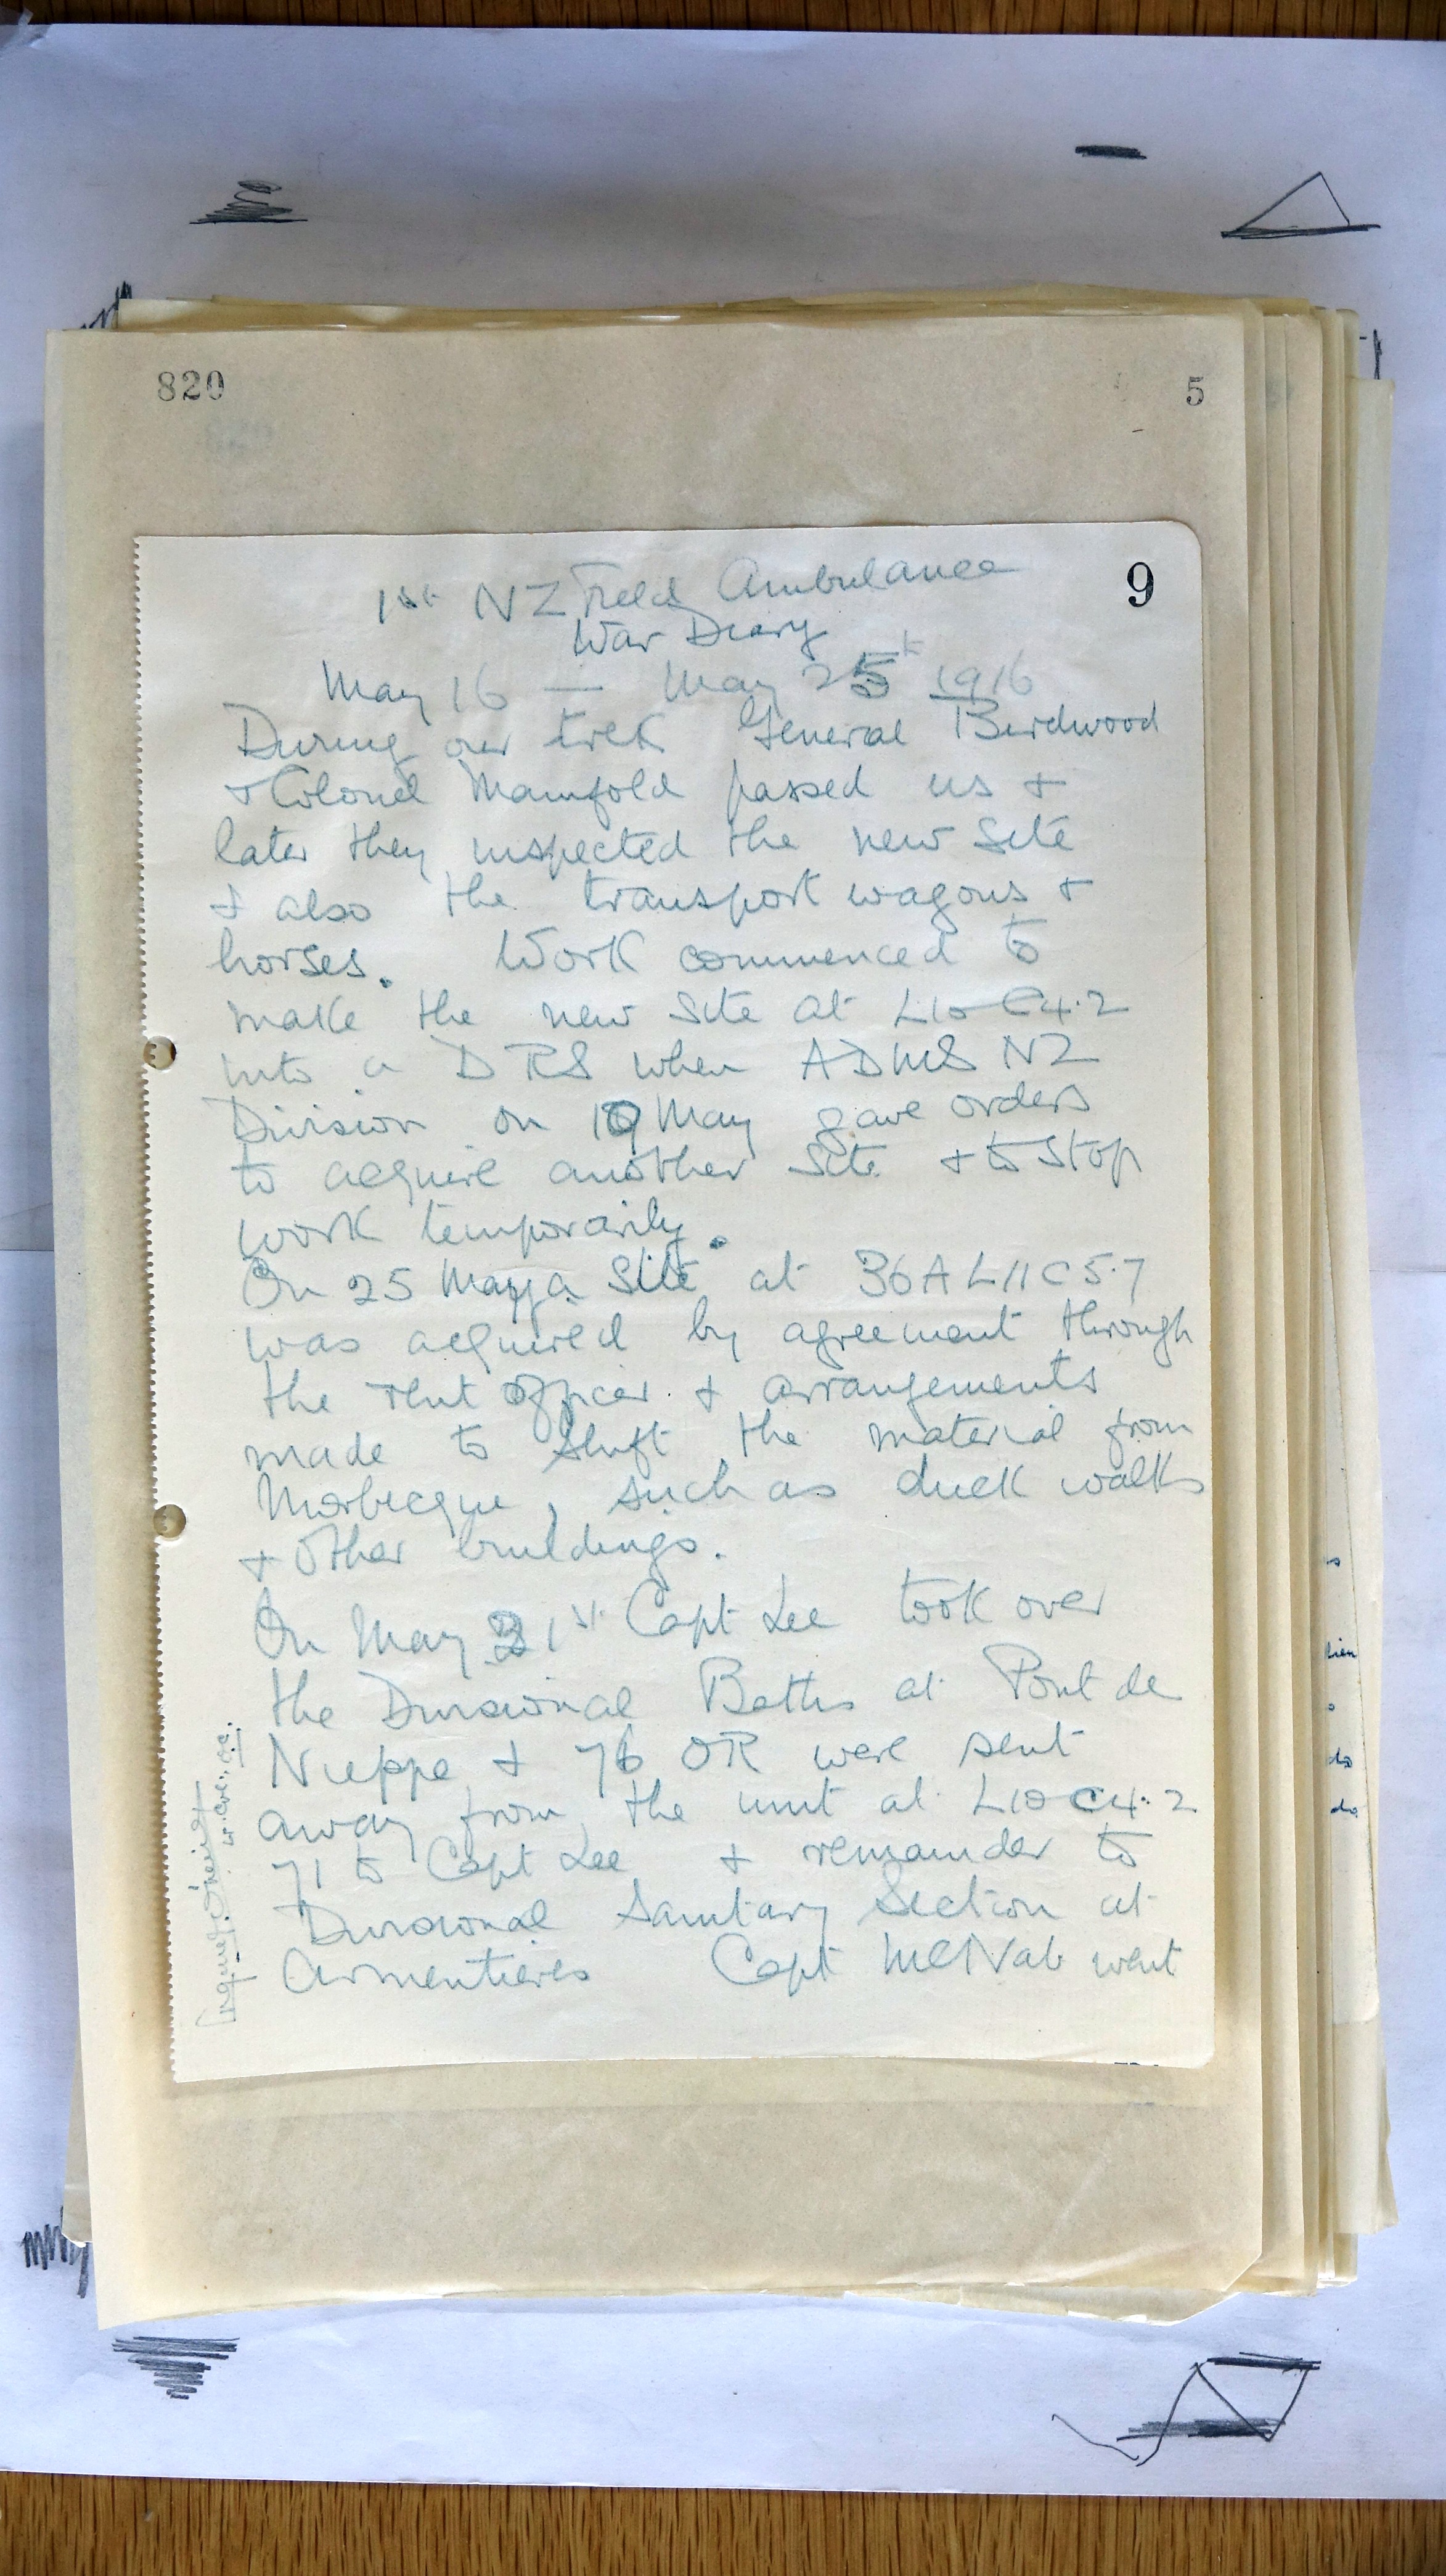 820
5
9
1st NZ Field Ambulance
War Diary
May 16 — May 25th 1916
During our trek General Birdwood
+ Colonel Manifold passed us +
later they inspected the new site
+ also the transport wagons +
horses. Work commenced to
make the new site at L10 C4.2
into a DRS when ADMS NZ
Division on 19 May gave orders
to acquire another site + to stop
work temporarily.
On 25 May a site at 36A L11 C5.7
was acquired by agreement through
the rent officer + arrangements
made to shift the material from
Morbecque, such as duck walks
+ other buildings.
On May 31st Capt Lee took over
the Divisional Baths at Pont de
Nieppe + 76 OR were sent
away from the unit at L10 C4.2
71 to Capt Lee + remainder to
Divisional Sanitary Section at
Armentieres Capt McNab went
lien
do
do